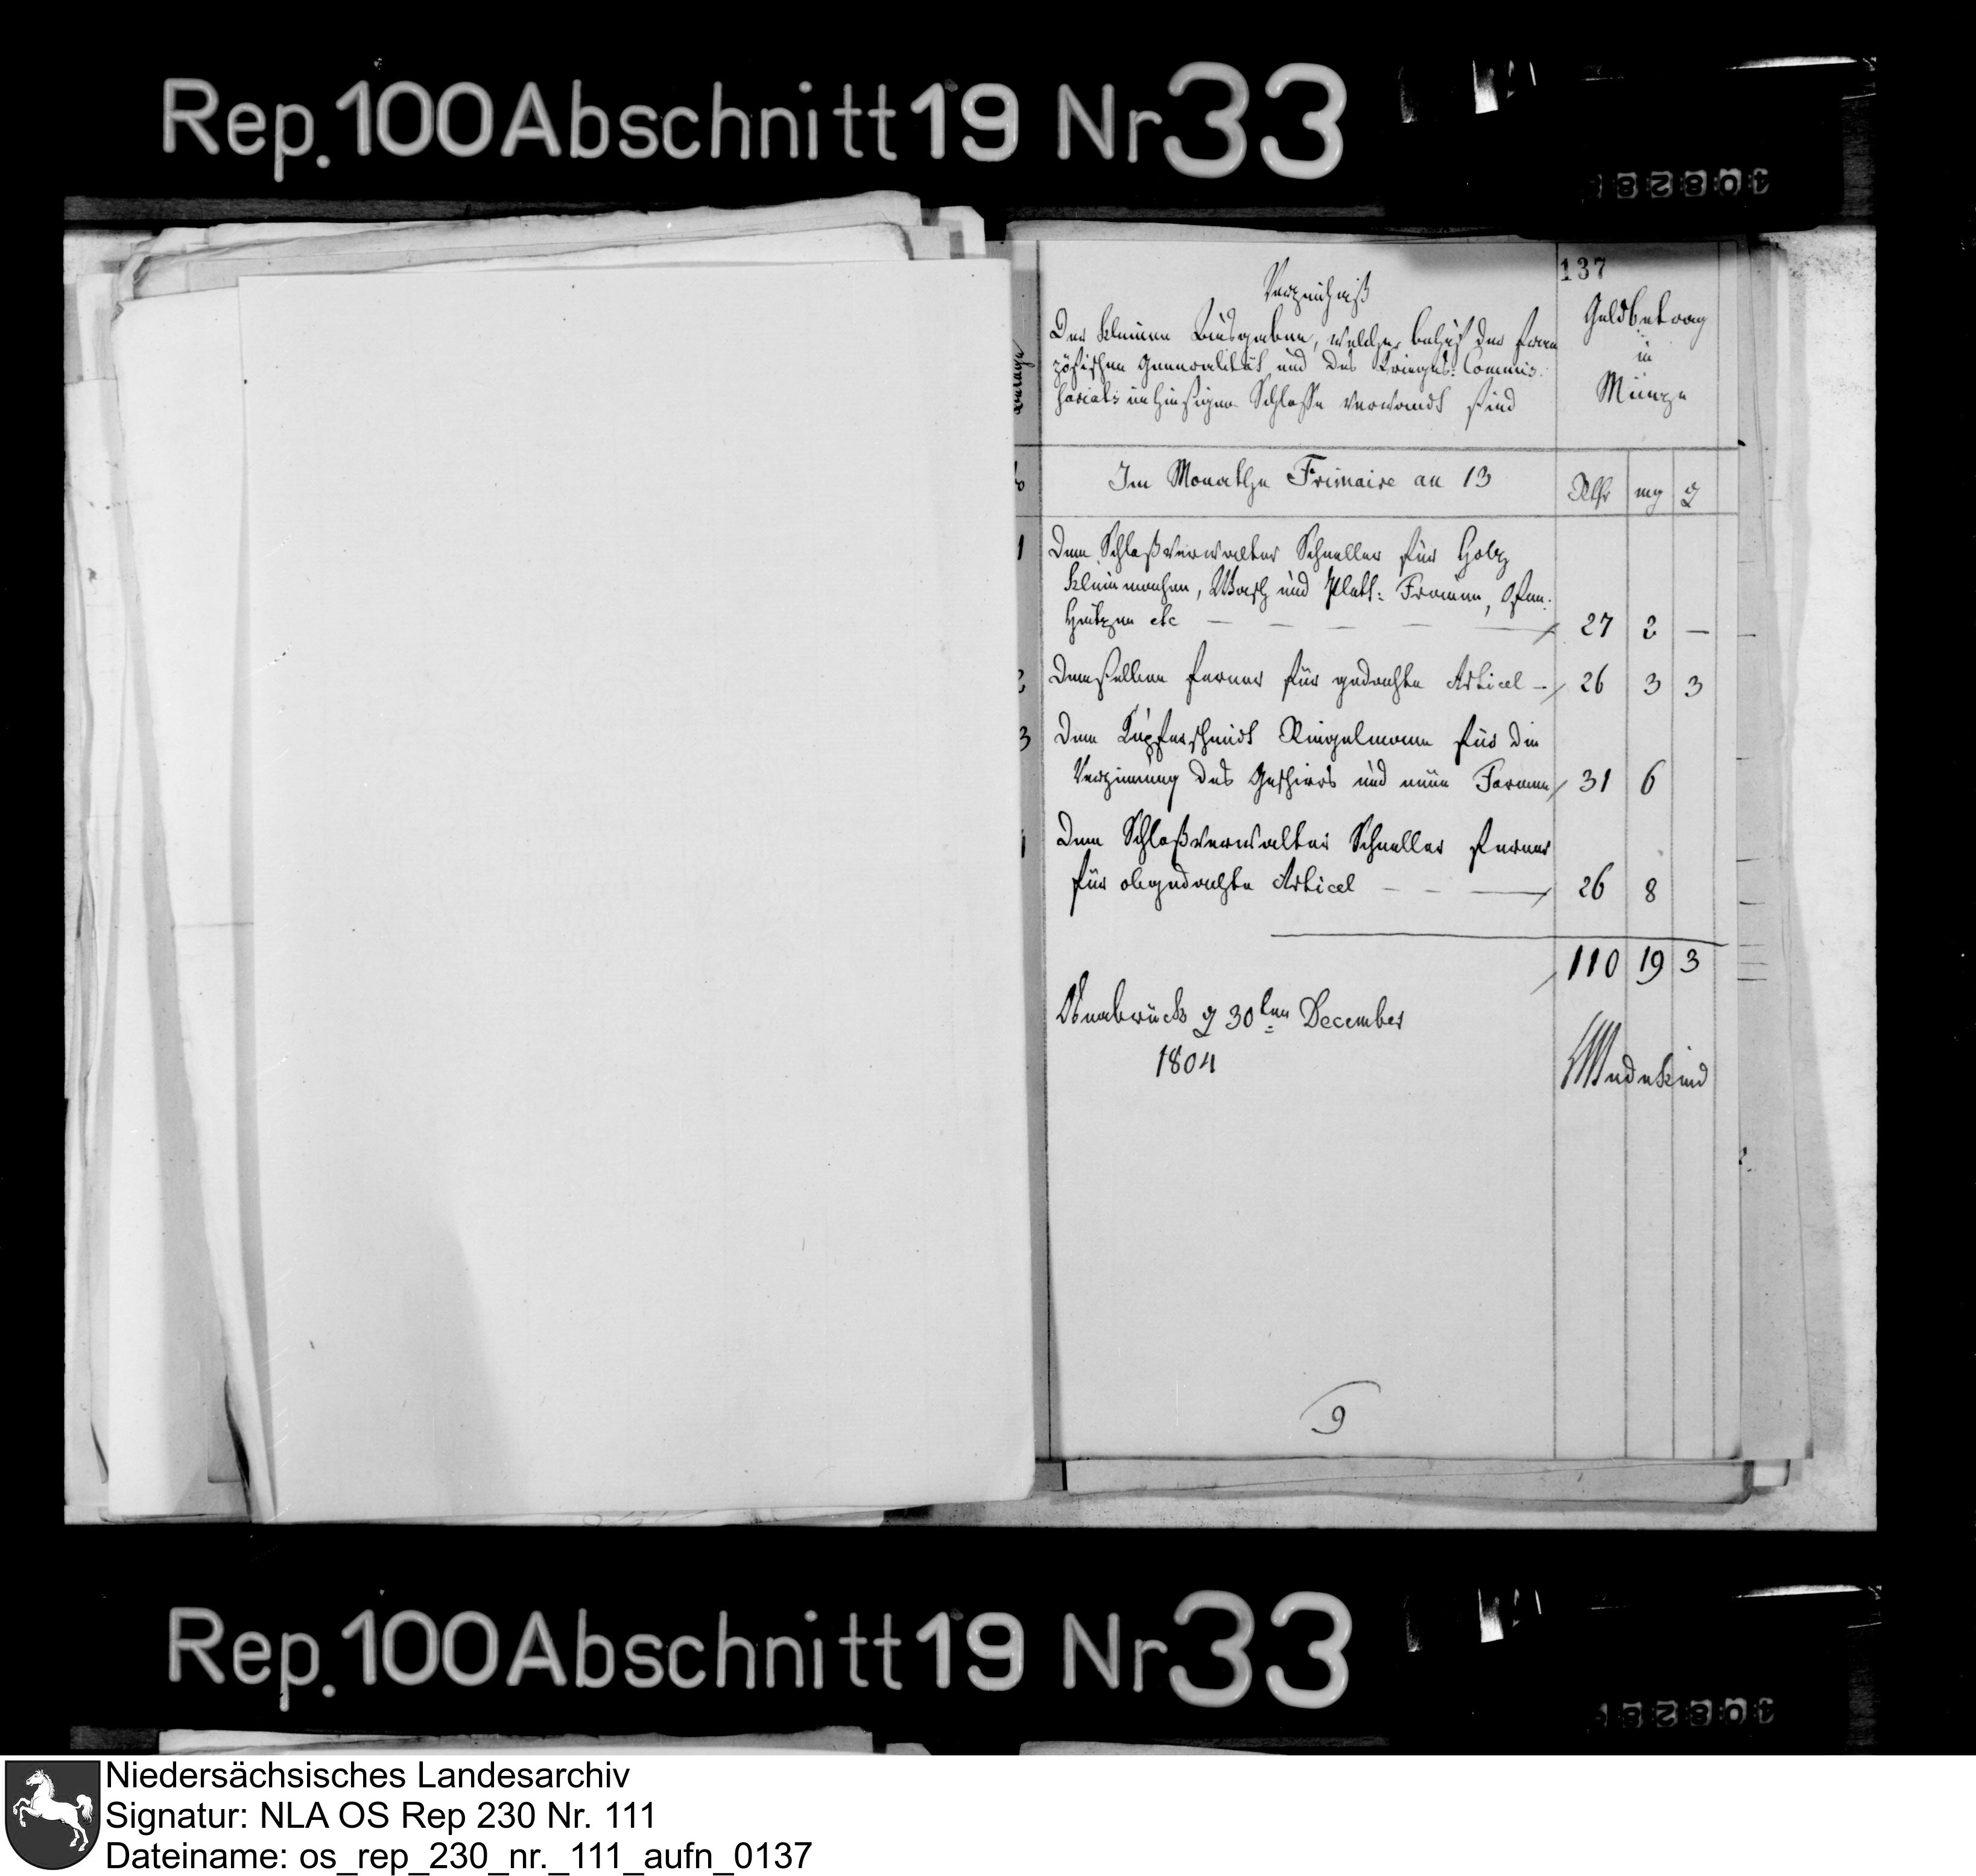 Rep. 100 Abschnitt 19 Nr 33
137
Verzeichniß
Der kleinen Ausgaben, welche behuf der fran
zösischen Generalität und des Kriegs: Commis:
sariats im hiesigen Schlosse verwandt sind
Geldbetrag
in
Münze
Im Monathe Frimaire an 13
Rthr mg ₰
1 Dem Schloßverwalter Schneller für Holz
kleinmachen, Wasch und Platt: Frauen, Ofen:
Heitzen etc — — — — — 27 2 —
2 Demselben ferner für gedachte Articel — 26 3 3
3 Dem Kupferschmidt Ringelmann für die
Verzinnung des Geschirrs und neue Formen 31 6
Dem Schloßverwalter Schneller ferner
für obgedachte Articel — — — 26 8
110 19 3
Osnabrück ₰ 30ten December
1804
Wedekind
9
Rep. 100 Abschnitt 19 Nr 33
Niedersächsisches Landesarchiv
Signatur: NLA OS Rep 230 Nr. 111
Dateiname: os_rep_230_nr._111_aufn_0137